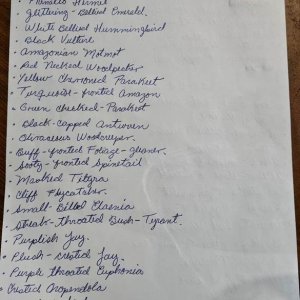 Planalto Hermit
Glittering-Bellied Emerald.
White Bellied Hummingbird
Black Vulture
Amazonian Motmot
Red Necked Woodpecker
Yellow Chevroned Parakeet
Turquoise-fronted Amazon
Green cheeked-Parakeet
Black-capped Antwren
Olivaceous Woodcreeper.
Buff-fronted Foliage-gleaner.
Sooty-fronted Spinetail
Masked Tityra
Cliff Flycatcher.
Small-Billed Elaenia
Streak-Throated Bush-Tyrant.
Purplish Jay.
Plush-crested Jay.
Purple throated Euphonia
Crested Oropendola